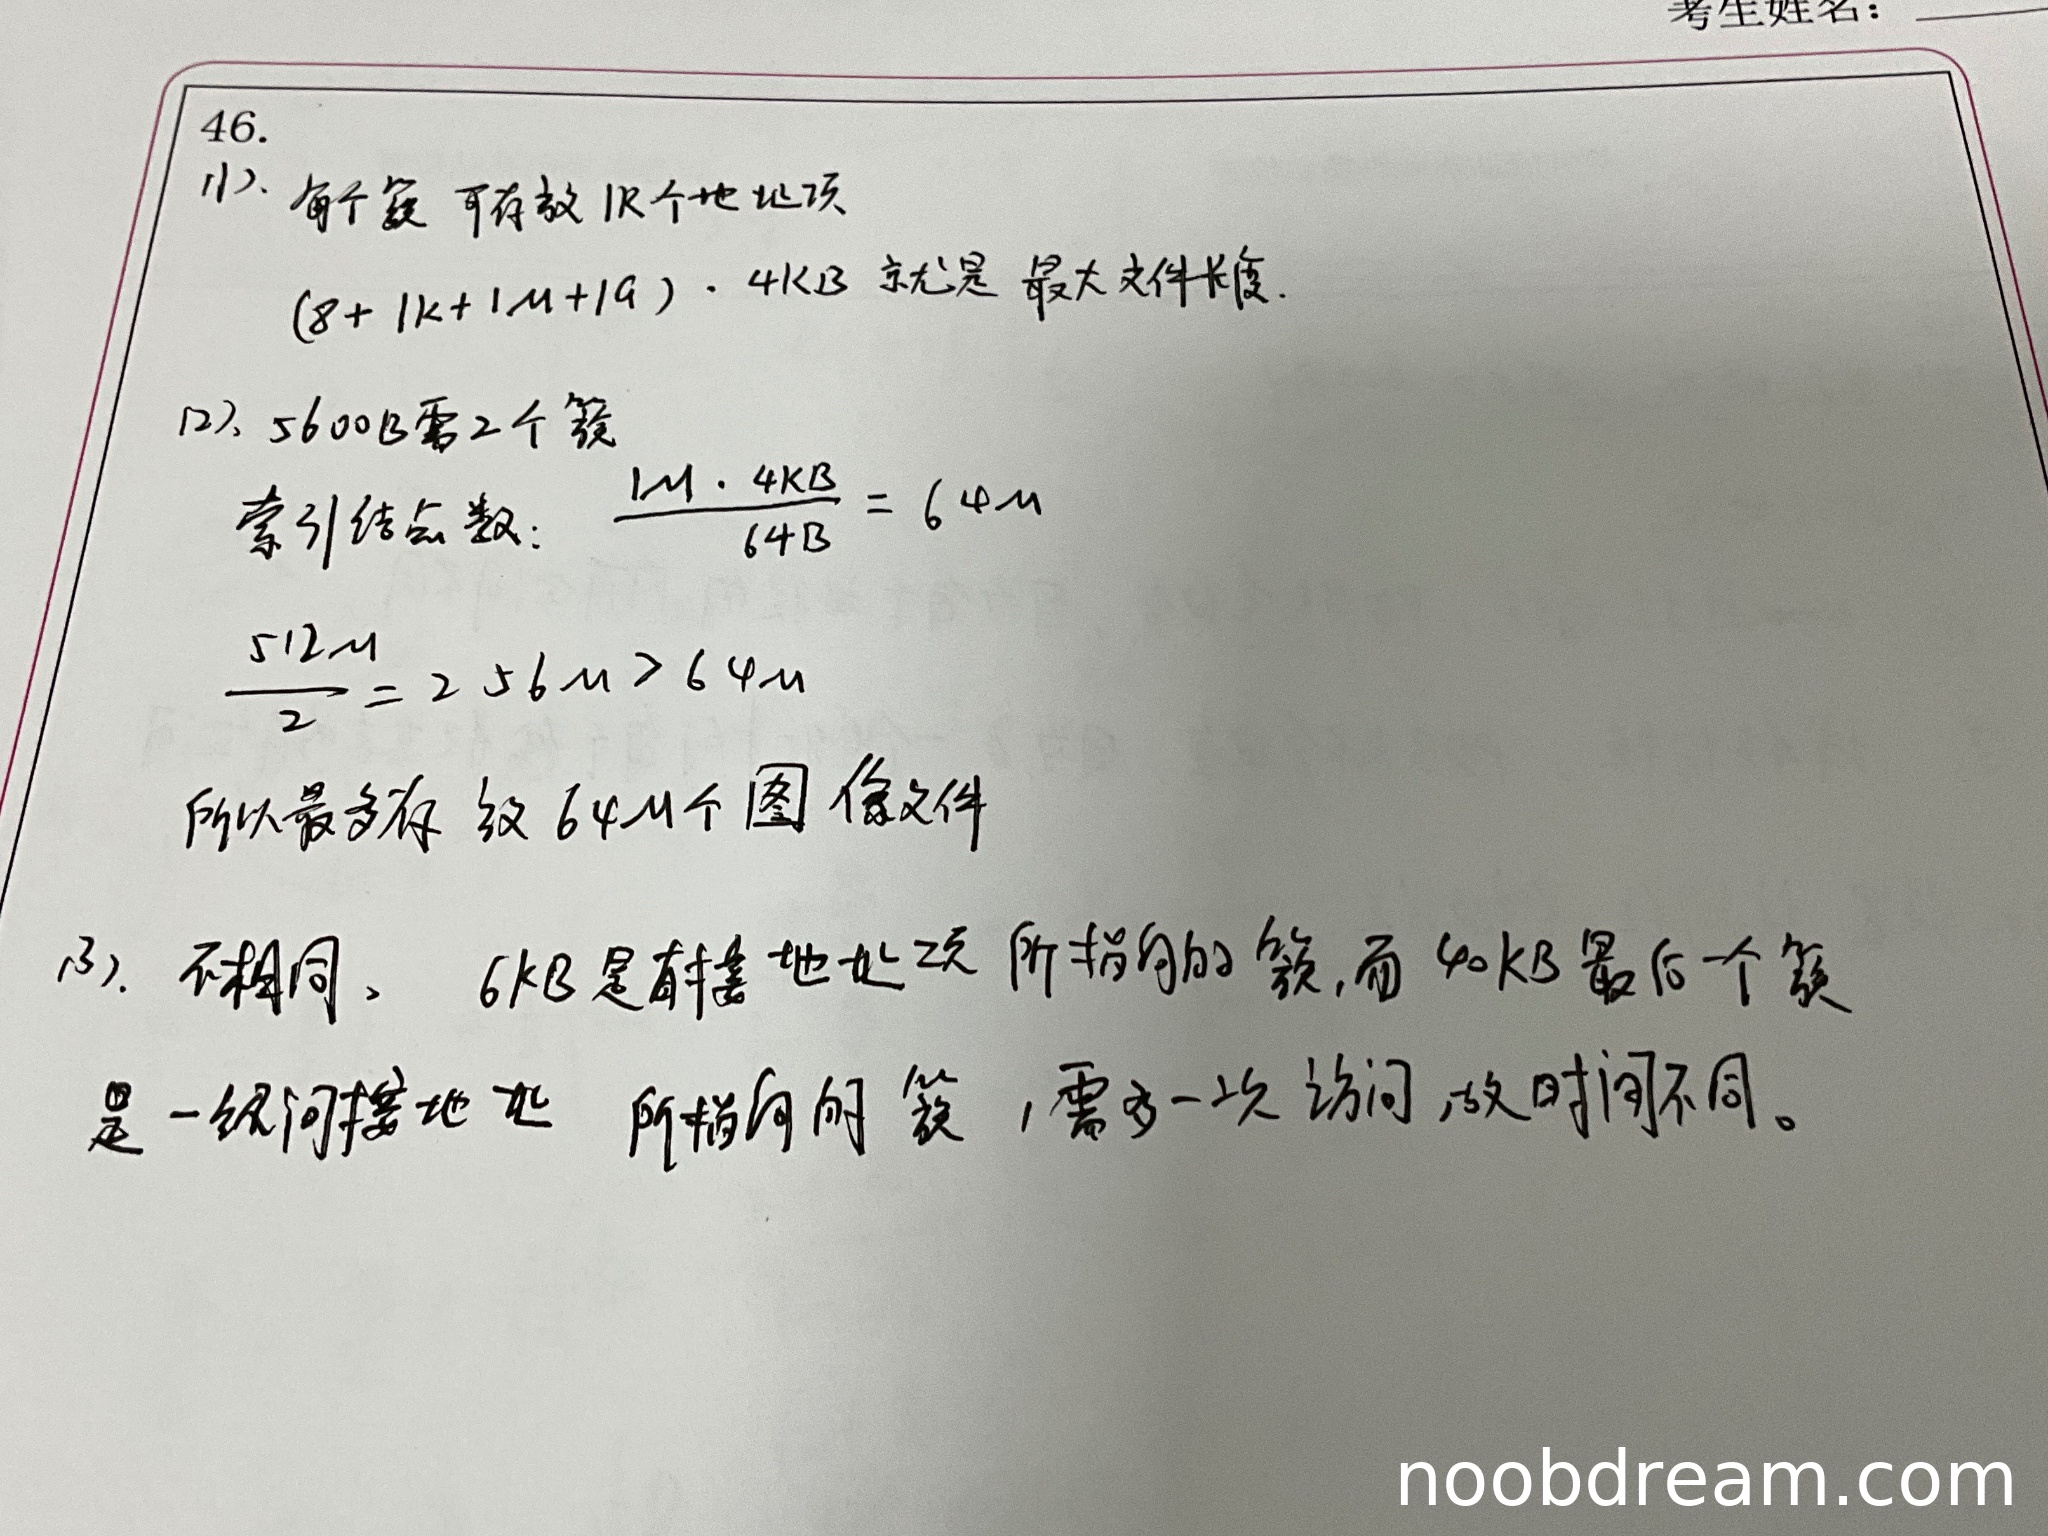 考生姓名：
46.
(1). 每个簇 可存放 1K个地址项
(8+1K+1M+1G) · 4KB 就是 最大文件长度.
(2). 5600B需2个簇
索引结点数: 1M · 4KB / 64B = 64M
512M / 2 = 256M > 64M
所以最多存放 64M个图像文件
(3). 不相同、 6KB是直接地址项 所指向的簇,而40KB最后一个簇
是一级间接地址 所指向的簇,需多一次访问,故时间不同。
noobdream.com